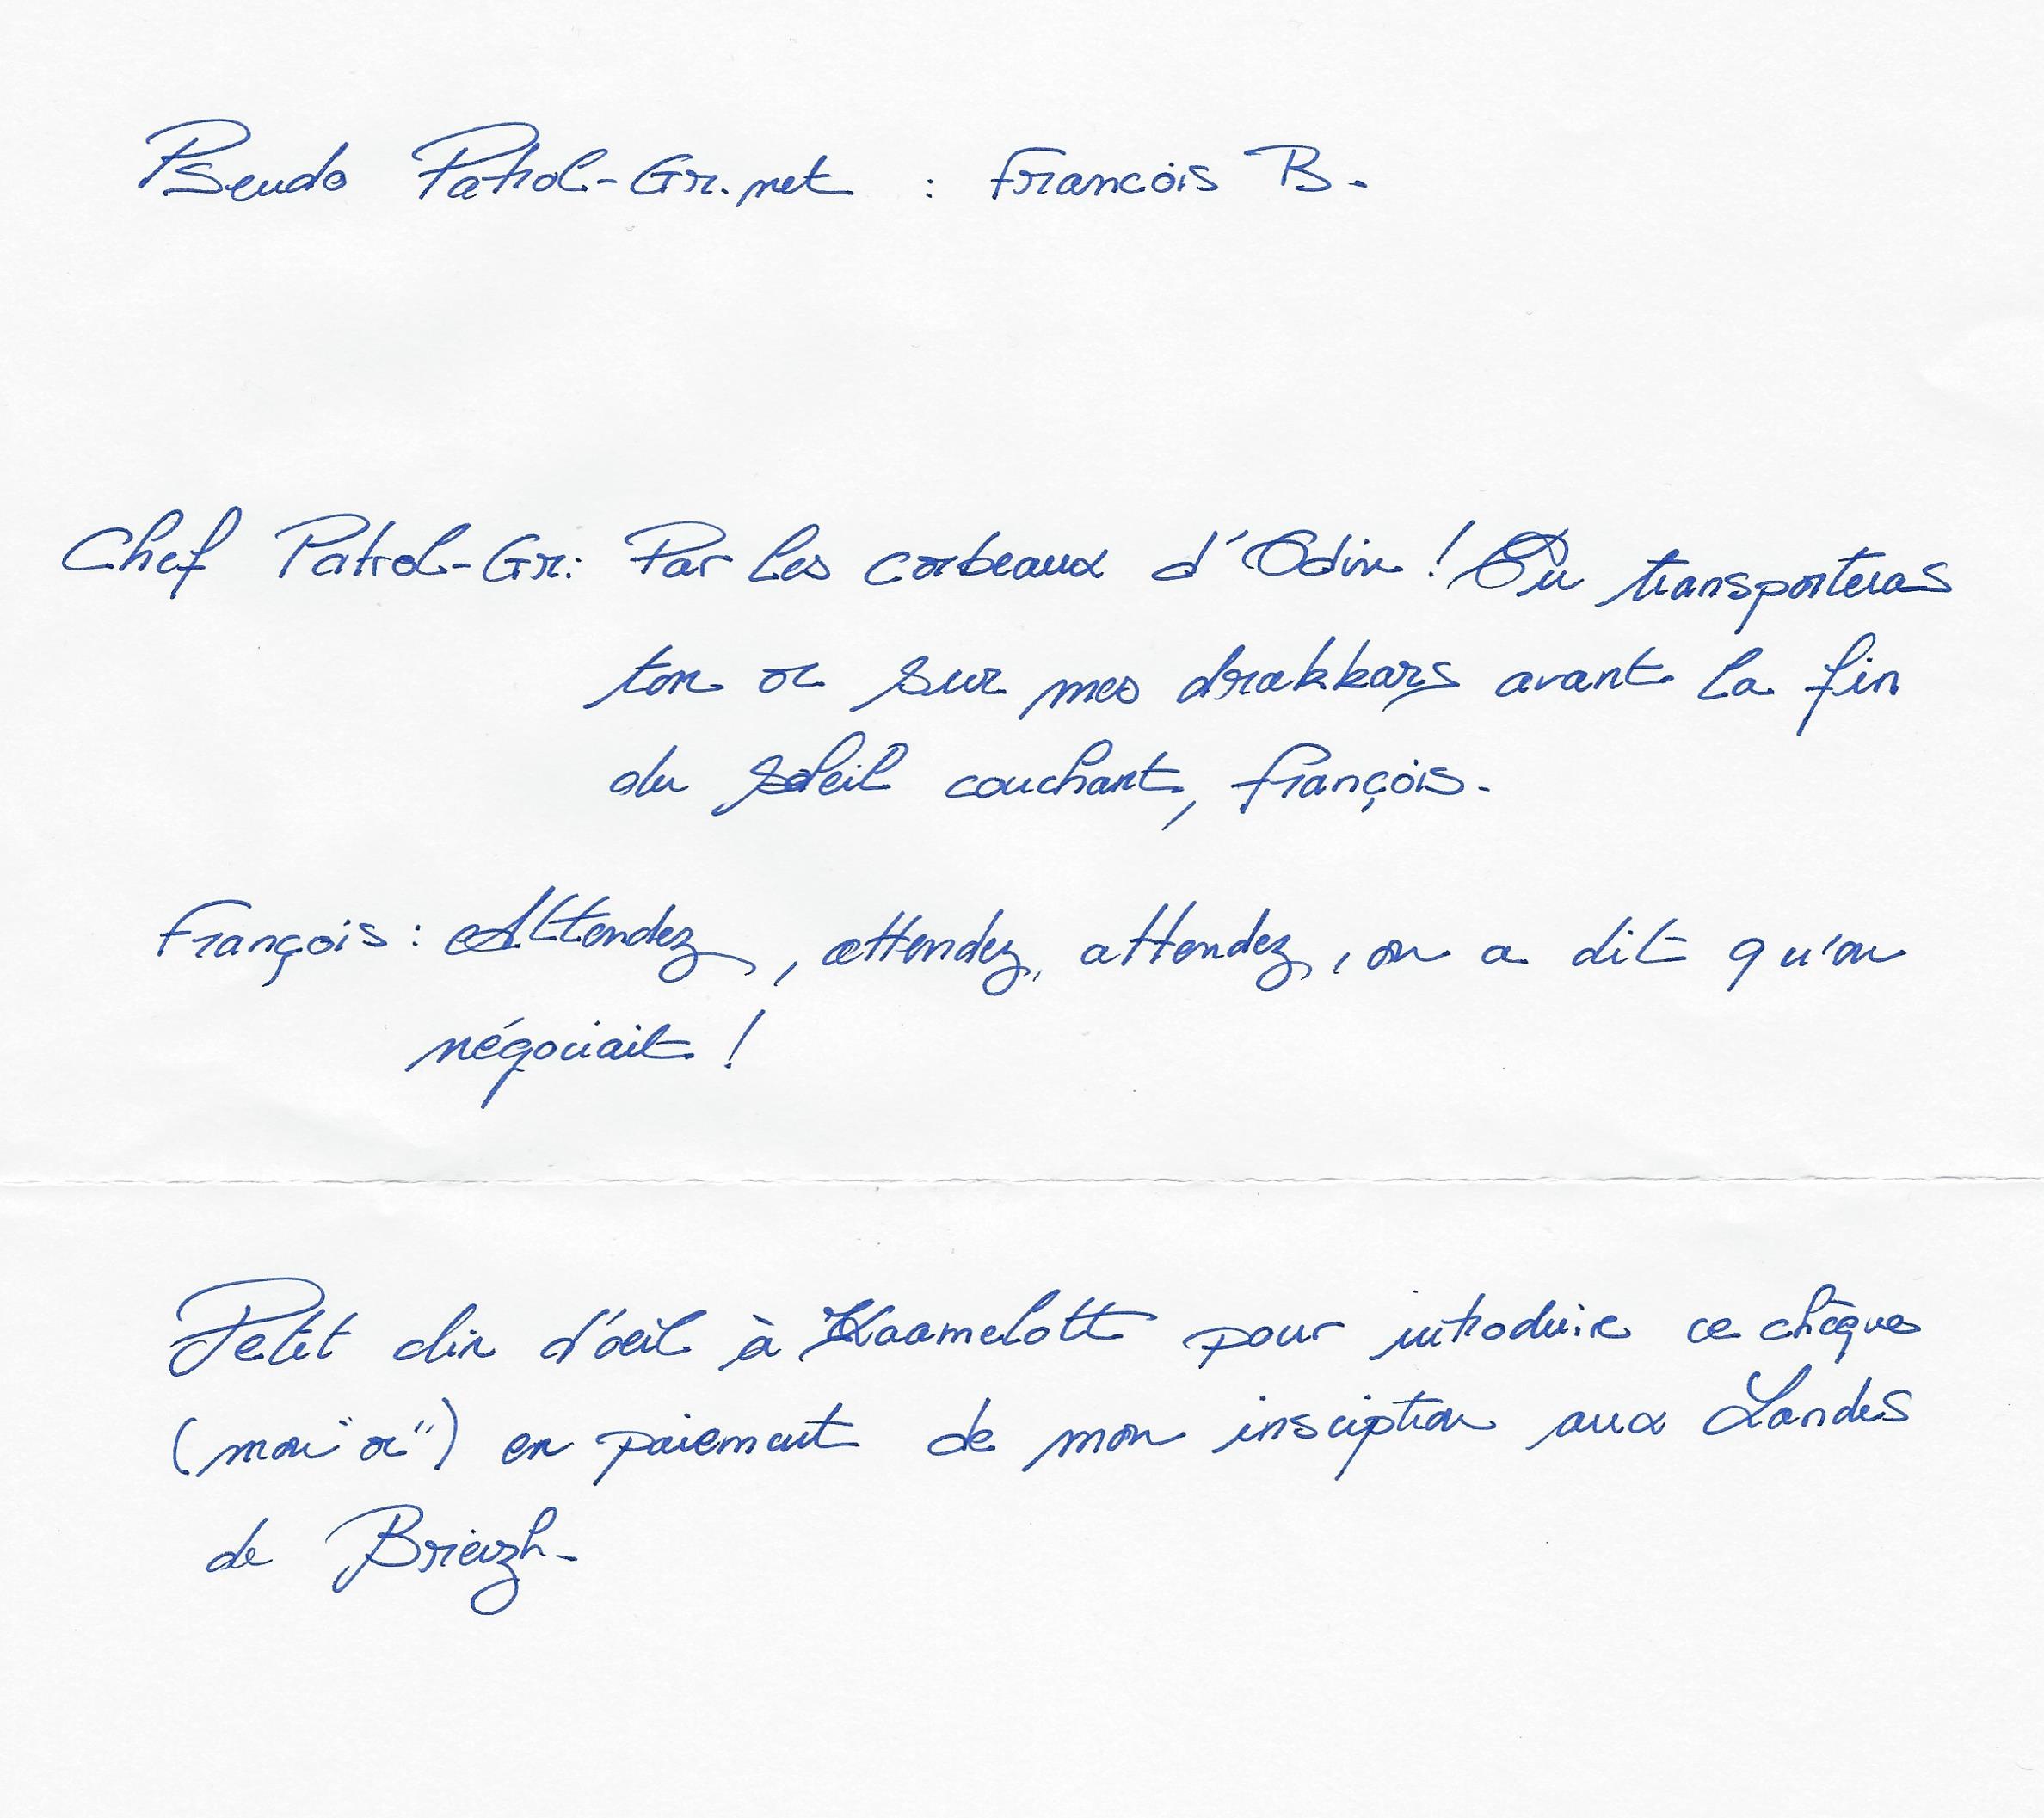 Pseudo Patrol-Gr.net : Francois B.
Chef Patrol-Gr: Par les corbeaux d'Odin ! Tu transporteras
ton or sur mes drakkars avant la fin
du soleil couchant, françois.
François : Attendez, attendez, attendez, on a dit qu'on
négociait !
Petit clin d'oeil à Kaamelott pour introduire ce chèque
(mon "or") en paiement de mon insciption aux Landes
de Brieizh.